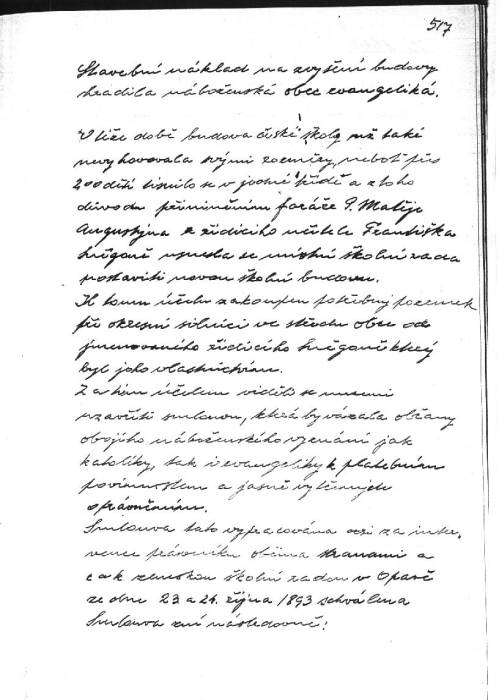 517
Stavební náklad na zvýšení budovy
hradila náboženská obec evangelická.
V téže době budova české školy už také
nevyhovovala svými rozměry, neboť přes
200 dětí tísnilo se v jedné třídě a z toho
důvodu přičiněním faráře P. Matěje
Augustýna a řídícího učitele Františka
usnesla se místní školní rada
postaviti novou školní budovu.
K tomu účelu zakoupen potřebný pozemek
při okresní silnici ve středu obce od
jmenovaného řídícího který
byl jeho vlastnictvím.
Za tím účelem viděli se nuceni
uzavříti smlouvu, která by vázala občany
obojího náboženského vyznání jak
katolíky, tak i evangelíky k platebním
povinnostem a jasně vytčeným
oprávněním.
Smlouva tato vypracována za inter-
vence právníka oběma stranami a
c a k zemskou školní radou v Opavě
ze dne 23 a 24. října 1893 schválena
Smlouva zní následovně: